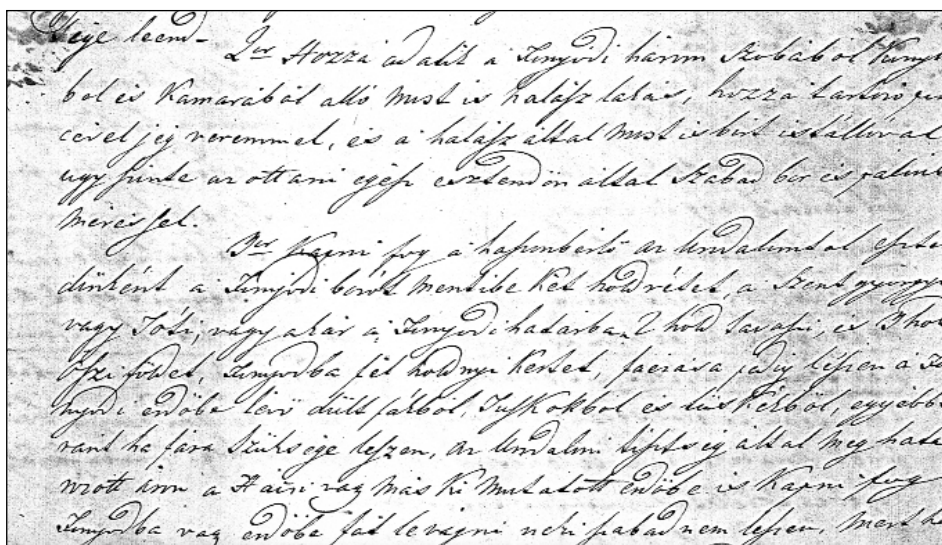 tége leend-
2or Hozzá adatik a Fonyódi három szobából kony
ból és Kamarából álló most is halász lakás, hozzá tartozó pin
cével jég veremmel, és a halász által most is birt istállóval
ugy szinte az ottani egész esztendőn által szabad bor és pálink
méréssel.
3or Kapni fog a haszonbérlő az Uradalomtól eszte
dőnként a Fonyódi berek mentibe két hold rétet, a Szent györgyi
vagy Tóti, vagy akár a Fonyódi határba 2 hold tavaszi, és 3 hol
őszi földet, Fonyodba fél holdnyi kertet, faizása pedig lészen a Fo
nyodi erdőbe lévő dült fából, Tuskokbol és tüskékből, egyébbi
ránt ha fára szüksége leszen, az Uradalmi tisztség által meg hatá
rozott áron a vagy más ki mutatott erdőbe is kapni fog
Fonyodba vag erdőbe fát levágni neki szabad nem leszen, mert ha